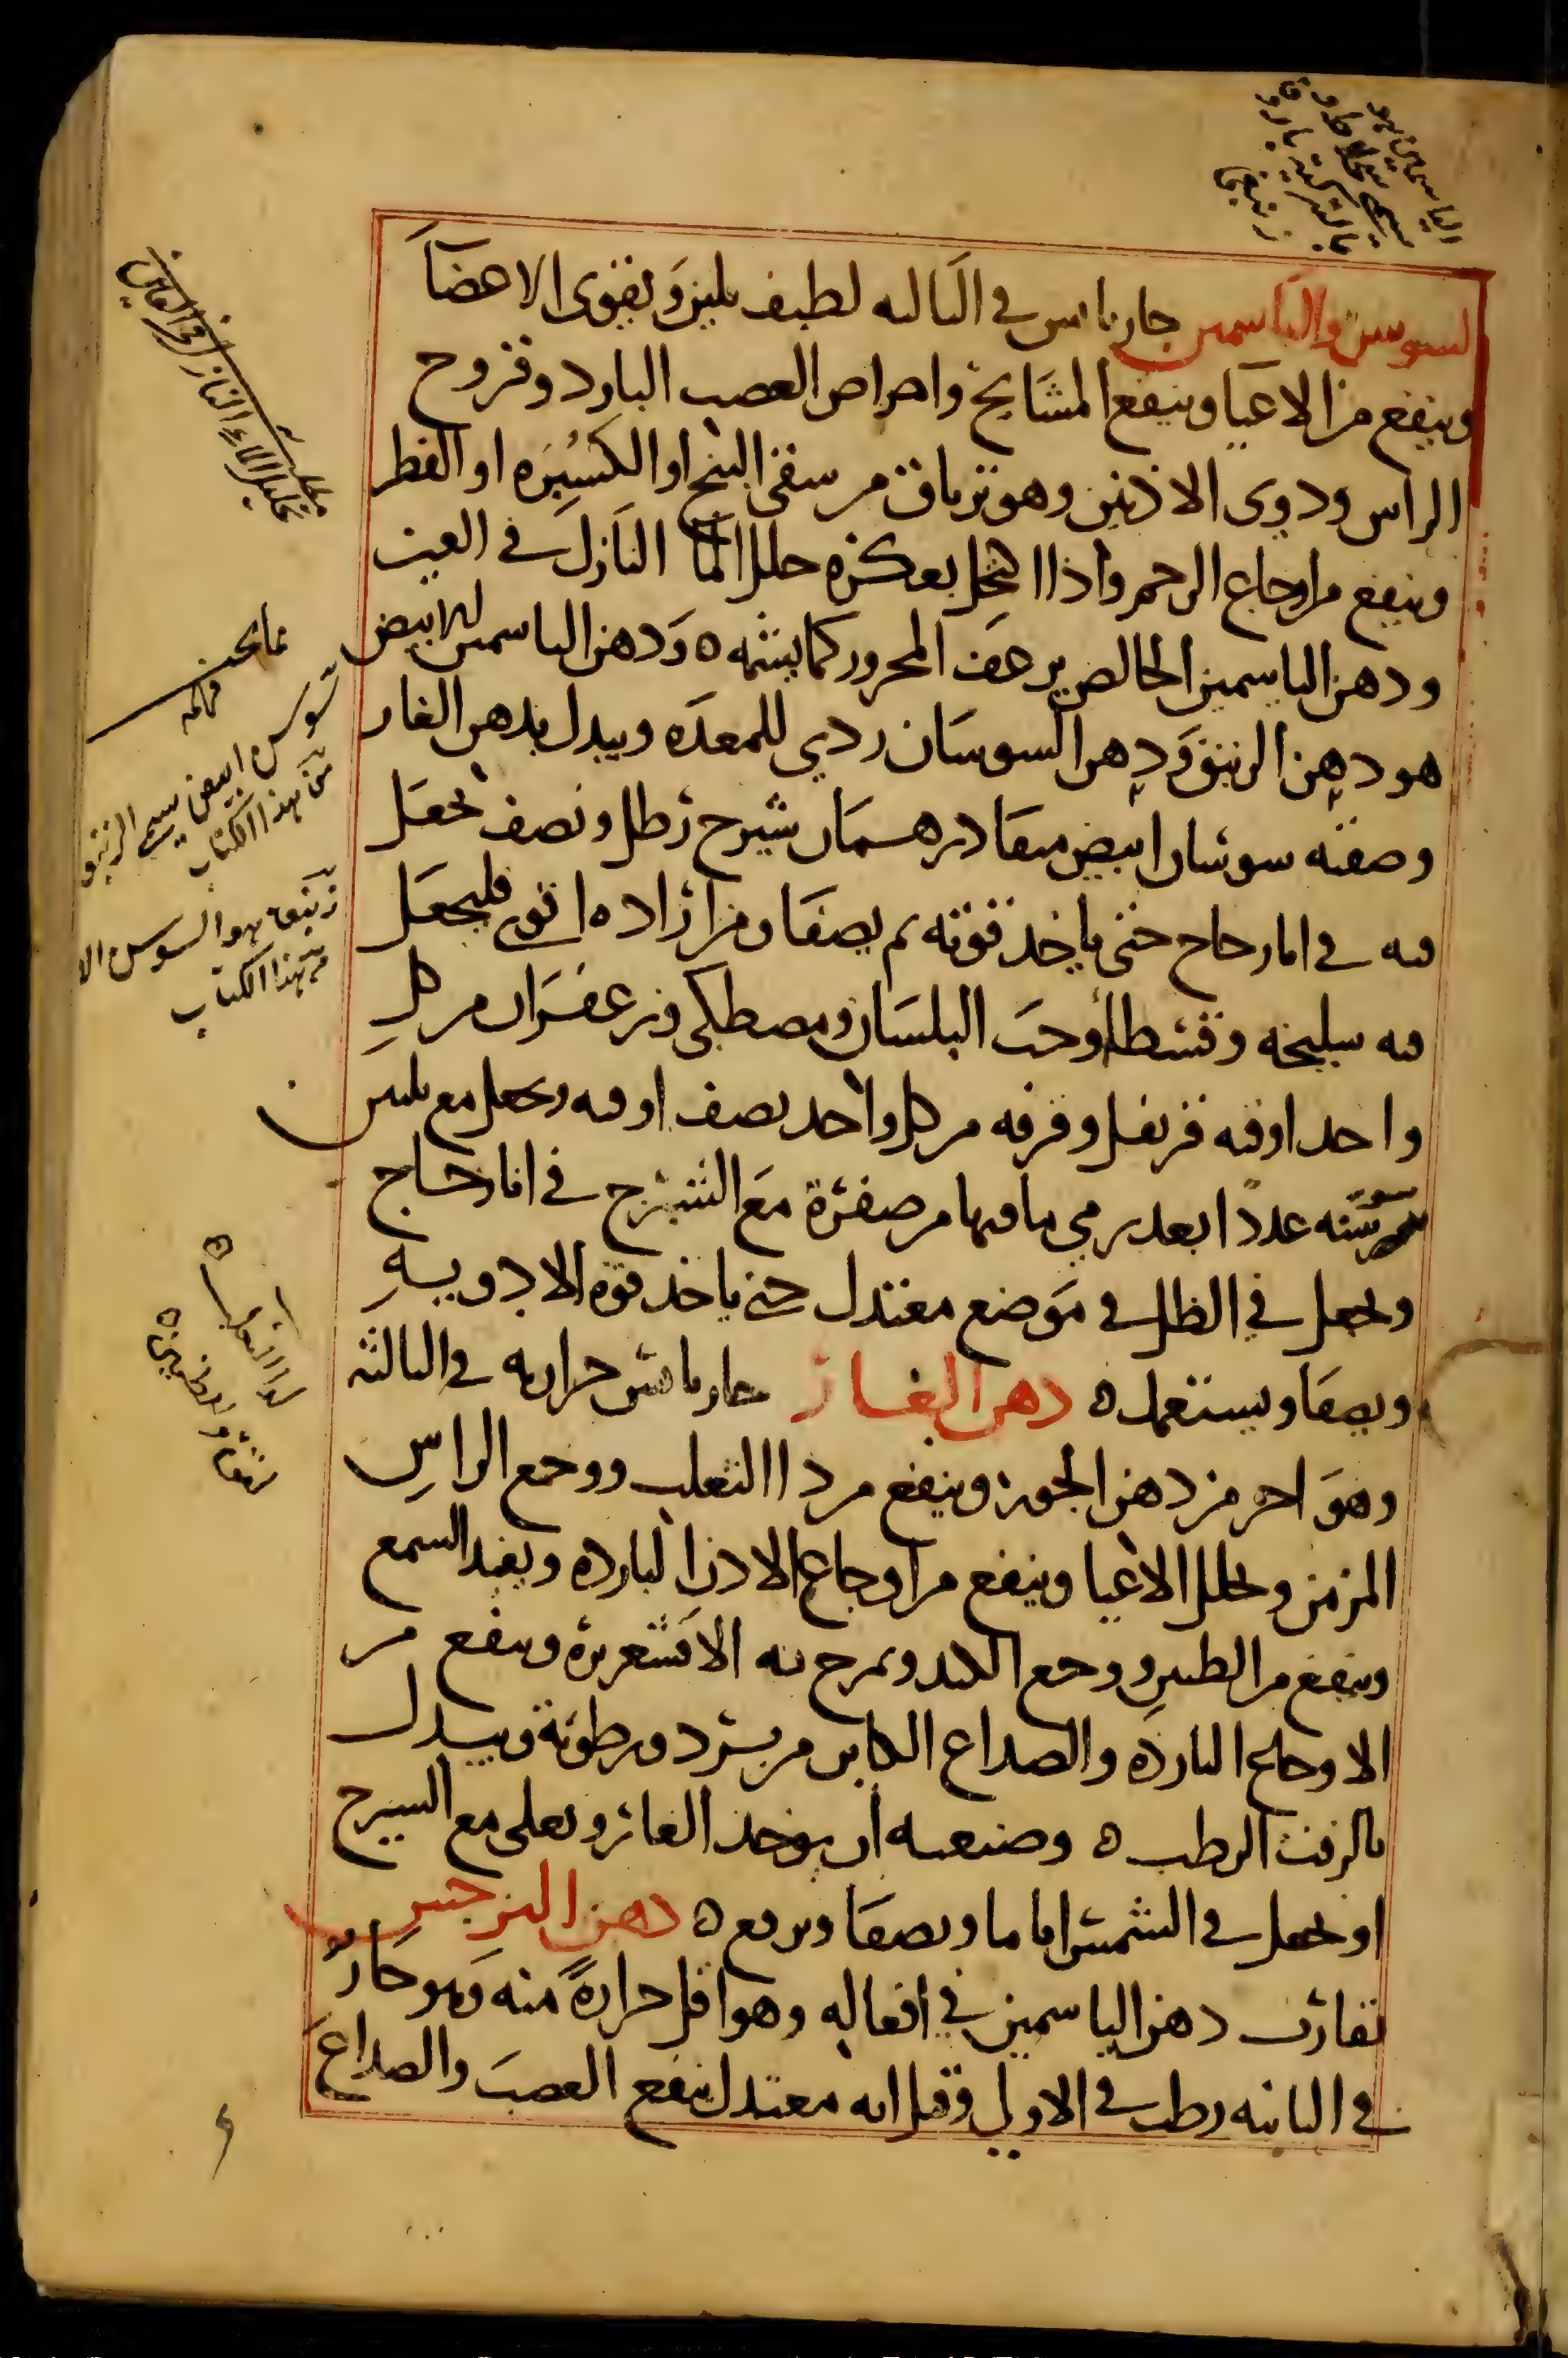 السوسن والياسمين حار يابس في الثالثه لطيف يلين ويقوى الاعضآ
وينفع من الاعيا وينفع المشايخ وامراض العصب البارد وقروح
الراس ودوى الاذنين وهو ترياق من سقى البنج او الكسبره او الفطر
وينفع من اوجاع الرحم واذا اكتحل بعكره حلل الما النازل في العين
ودهن الياسمين الخالص يرعف المحرور كما يشمه ودهن الياسمين الابيض
هو دهن الزنبق ودهن السوسان ردي للمعده ويبدل بدهن الغار
وصفته سوسان ابيض منقا درهمان شيرج رطل ونصف يجعل
فيه في انا زجاج حتى ياخذ قوته ثم يصفا ومن اراده اقوى فليجعل
فيه سليخه وقسطا وحب البلسان ومصطكى وزعفران من كل
واحد اوقيه قرنفل وقرفه من كل واحد نصف اوقيه ويجعل مع ثلثين
سوسنه عددا بعد رمي ما فيها من صفرة مع الشيرج في انا زجاج
ويجعل في الظل في موضع معتدل حتى ياخذ قوة الادويه
ويصفا ويستعمل ه دهن الغار حار يابس حرارته في الثالثه
وهو احر من دهن الجوز وينفع من دا الثعلب ووجع الراس
المزمن ويحلل الاعيا وينفع من اوجاع الاذن البارده ويفيد السمع
وينفع من الطنين ووجع الكبد ويمرخ به الاقشعريرة وينفع من
الاوجاع البارده والصداع الكاين من برد ورطوبة ويبدل
بالزفت الرطب ه وصنعته ان يوخذ الغار ويغلى مع الشيرج
او يجعل في الشمس اياما ويصفا ويرفع ه دهن النرجس
تقارب دهن الياسمين في افعاله وهو اقل حرارة منه وهو حار
في الثانيه رطب في الاولى وقيل انه معتدل ينفع العصب والصداع
مطلب
تحليل الماء النازل في العين
سوسن ابيض يسمى الزنبق
من هذا الكتاب
زنبق هو السوسن الا
من هذا الكتاب